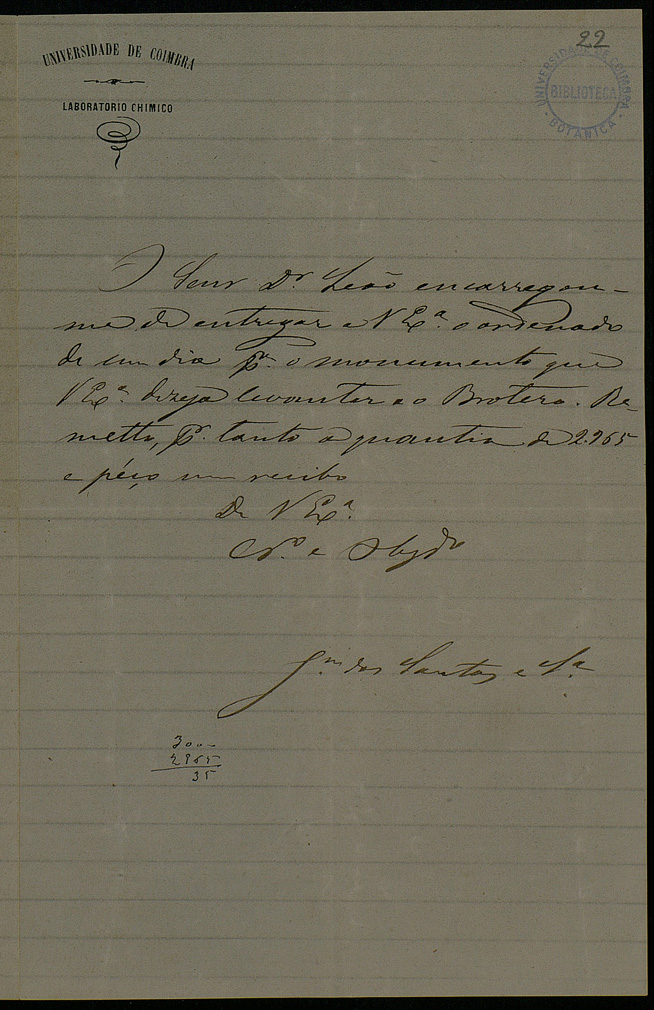 22
UNIVERSIDADE DE COIMBRA
LABORATORIO CHIMICO
UNIVERSIDADE DE COIMBRA
BIBLIOTECA
BOTANICA
O Senr Dr. Leão encarregou-
me de entregar a V Exª. o ordenado
de um dia pª. o monumento que
V Exª. dezeja levantar ao Brotero. Re-
metto, pr. tanto a quantia de 2.965
e péço um recibo
De V Exª.
Cr.º e Obgdo
Jm. dos Santos e Sª
3000
2965
35